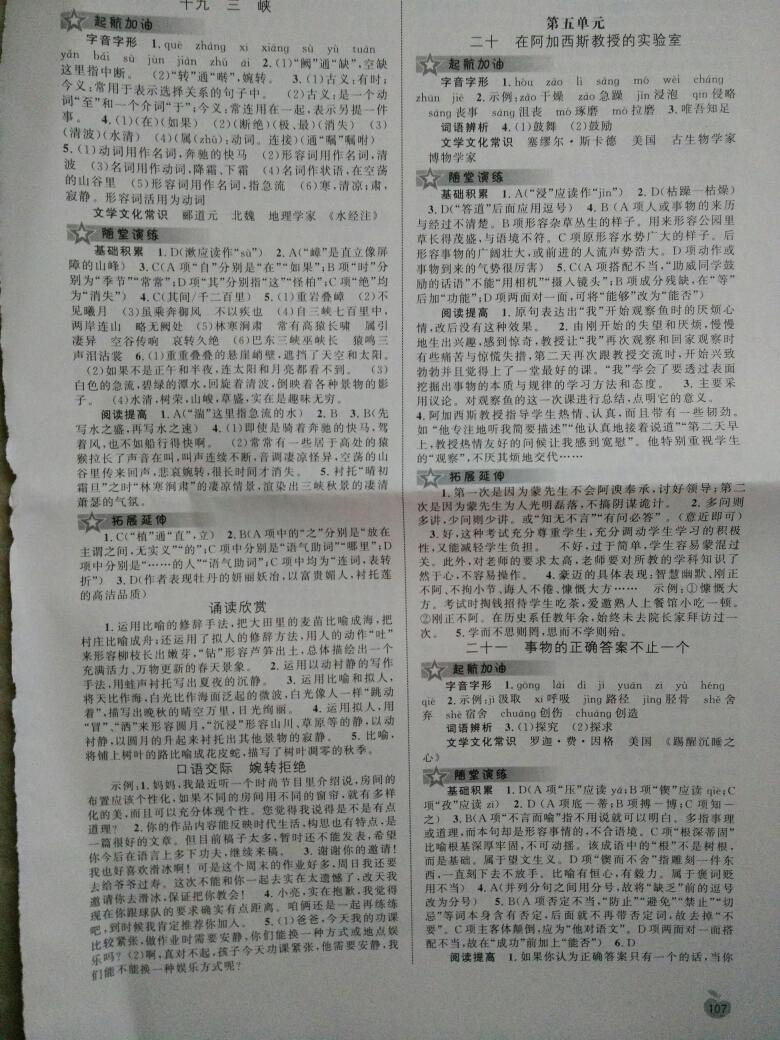 十九 三 峡
起航加油
字音字形 1.quē zhǎng xī xiāng sù yù tuān
yǎn bǎi sù jùn jiàn zhǔ āi 2.(1)“阙”通“缺”,空缺
这里指中断。 (2)“转”通“啭”,婉转。 3.(1)古义:有时;
今义:常用于表示选择关系的句子中。 (2)古义:是一个动
词“至”和一个介词“于”;今义:常连用在一起,表示另提一件
事。 4.(1)(在)(如果) (2)(断绝)(极、最)(消失) (3)
(清波)(水清) (4)(属(zhǔ);动词。连接)(通“嘱”嘱咐)
5.(1)动词用作名词,奔驰的快马 (2)形容词用作名词,清
波 (3)名词用作动词,降霜、下霜 (4)名词作状语,在空荡
的山谷里 (5)形容词用作名词,指急流 (6)寒,清凉;肃,
寂静。形容词活用为动词
文学文化常识 郦道元 北魏 地理学家 《水经注》
随堂演练
基础积累 1.D(漱应读作“sù”) 2.A(“嶂”是直立像屏
障的山峰) 3.C(A项“自”分别是“在”“如果”;B项“时”分
别为“季节”“常常”;D项“其”分别指“这”“怪柏”;C项“绝”均
为“消失”) 4.C(其间/千二百里) 5.(1)重岩叠嶂 (2)不
见曦月 (3)虽乘奔御风 不以疾也 (4)自三峡七百里中,
两岸连山 略无阙处 (5)林寒涧肃 常有高猿长啸 属引
凄异 空谷传响 哀转久绝 (6)巴东三峡巫峡长 猿鸣三
声泪沾裳 6.(1)重重叠叠的悬崖峭壁,遮挡了天空和太阳。
(2)如果不是正午和半夜,连太阳和月亮都看不到。 (3)
白色的急流,碧绿的潭水,回旋着清波,倒映着各种景物的影
子。 (4)水清,树荣,山峻,草盛,实在是趣味无穷。
阅读提高 1.A(“湍”这里指急流的水) 2.B 3.B(先
写水之盛,再写水之速) 4.(1)即使是骑着奔驰的快马,驾
着风,也不如船行得快啊。 (2)常常有一些居于高处的猿
猴拉长了声音在叫,叫声连续不断,音调凄凉怪异,空荡的山
谷里传来回声,悲哀婉转,很长时间才消失。 5.衬托“晴初
霜旦”之时“林寒涧肃”的凄凉情景,渲染出三峡秋景的凄清
萧瑟的气氛。
拓展延伸
1.C(“植”通“直”,立) 2.B(A项中的“之”分别是“放在
主谓之间,无实义”“的”;C项中分别是“语气助词”“哪里”;D
项中分别是“……的人”“语气助词”;C项中均为“连词,表转
折”) 3.D(作者表现牡丹的妍丽妖冶,以富贵媚人,衬托莲
的高洁品质)
诵读欣赏
1.运用比喻的修辞手法,把大田里的麦苗比喻成海,把
村庄比喻成舟;还运用了拟人的修辞方法,用人的动作“吐”
来形容柳枝长出嫩芽,“钻”形容芦笋出土,总体描绘出一个
充满活力、万物更新的春天景象。 2.运用以动衬静的写作
手法,用蛙声衬托写出夏夜的沉静。 3.运用比喻和拟人,
将天比作海,白光比作海面泛起的微波,白光像人一样“跳动
着”,描写出晚秋的晴空万里,日光绚丽。 4.运用拟人,用
“冒”、“洒”来形容圆月,“沉浸”形容山川、草原等的静,以动
衬静,以圆月的升起来衬托出其他景物的寂静。 5.比喻,
将铺上树叶的路比喻成花皮蛇,描写了树叶凋零的秋季。
口语交际 婉转拒绝
示例:1.妈妈,我最近看一个时尚节目里介绍说,房间的
布置应该个性化,如果不同的房间用不同的窗帘,就有多样
化的美,而且可以充分体现个性。您觉得我说得是不是有点
道理? 2.你的作品内容能反映时代生活,构思也有特点,是
一篇很好的文章。但目前稿子太多,暂时还不能发表,希望
你今后在语言上多下功夫,继续来稿。 3.谢谢你的邀请!
我也好喜欢滑冰啊!可是这个周末的作业好多,周日我还要
去给爷爷过寿。这次不能和你一起去实在太遗憾了,改天我
邀请你去滑冰,保证把你教会! 4.小亮,实在抱歉,我觉得
现在你跟球队的要求确实有点距离。咱俩还是一起再练练
吧,到时候我肯定推荐你加入。 5.(1)爸爸,今天我的功课
比较紧张,做作业时需要安静,你们能不能换一种方式或地点娱
乐吗? (2)啊,真对不起,孩子今天功课紧张,他需要安静,我
们能不能换一种娱乐方式呢?
第五单元
二十 在阿加西斯教授的实验室
起航加油
字音字形 1.hòu zào lì sǎng mó wèi cháng
zhūn jiē 2.示例:zào干燥 zào急躁 jìn浸泡 qīn侵略
sàng丧事 sàng沮丧 mó琢磨 mó拉磨 3.唯吾知足
词语辨析 (1)鼓舞 (2)鼓励
文学文化常识 塞缪尔·斯卡德 美国 古生物学家
博物学家
随堂演练
基础积累 1.A(“浸”应读作“jìn”) 2.D(枯躁—枯燥)
3.D(“答道”后面应用逗号) 4.B(A项人或事物的来历
与经过不清楚。B项形容杂草丛生的样子。用来形容公园里
草长得茂盛,与语境不符。C项原形容水势广大的样子。后
形容事物的广阔壮大,或前进的人流声势浩大。D项动作或
事物到来的气势很厉害) 5.C(A项搭配不当,“助威同学鼓
励的话语”不能“用相机”“摄人镜头”;B项成分残缺,在“等”
后加“功能”;D项两面对一面,可将“能够”改为“能否”)
阅读提高 1.原句表达出“我”开始观察鱼时的厌烦心
情,改后没有这种效果。 2.由刚开始的失望和厌烦,慢慢
地生出兴趣,感到惊奇,教授让“我”再次观察和回家观察时
有些痛苦与惊慌失措,第二天再次跟教授交流时,开始兴致
勃勃并且觉得上了一堂最好的课。“我”学会了要透过表面
挖掘出事物的本质与规律的学习方法和态度。 3.主要采
用议论。对观察鱼的这一课进行总结,点明它的意义。
4.阿加西斯教授指导学生热情、认真,而且带有一些韧劲。
如“他专注地听我简要描述”“他认真地接着说道”“第二天早
上,教授热情友好的问候让我感到宽慰”。他特别重视学生
的“观察”,不厌其烦地交代……
拓展延伸
1.第一次是因为蒙先生不会阿谀奉承,讨好领导;第二
次是因为蒙先生为人光明磊落,不搞阴谋诡计。 2.多问则
多讲,少问则少讲。或“知无不言”“有问必答”。(意近即可)
3.好,这种考试充分尊重学生,充分调动学生学习的积极
性,又能减轻学生负担。 不好,过于简单,学生容易蒙混过
关。此外,对老师的要求太高,老师要对所教的学科知识了
然于心,不容易操作。 4.豪迈的具体表现:智慧幽默、刚正
不阿、不拘小节、诲人不倦、慷慨大方…… 示例:①慷慨大
方。考试时掏钱招待学生吃茶,爱邀熟人上餐馆小吃一顿。
②刚正不阿。在历史系任教年余,始终未去院长家拜访过一
次。 5.学而不思则罔,思而不学则殆。
二十一 事物的正确答案不止一个
起航加油
字音字形 1.gōng lài dì jì yuán zì yù héng
qiè 2.示例:jí汲取 xī呼吸 jìng路径 jìng胫骨 shě舍
弃 shè宿舍 chuāng创伤 chuàng创造
词语辨析 1.(1)探究 (2)探求
文学文化常识 罗迦·费·因格 美国 《踢醒沉睡之
心》
随堂演练
基础积累 1.D(A项“压”应读yà;B项“锲”应读qiè;C
项“孜”应读zī) 2.D(A项底—蒂;B项搏—博;C项知—
之) 3.B(A项“不言而喻”指不用说就可以明白。多指事理
或道理,而本句却是形容事情的,不合语境。C项“根深蒂固”
比喻根基深厚牢固,不可动摇。该成语中的“根”不是树根,
而是基础。属于望文生义。D项“锲而不舍”指雕刻一件东
西,一直刻下去不放手。比喻有恒心,有毅力。属于褒词贬
用不当) 4.A(并列分句之间用分号,故将“缺乏”前的逗号
改为分号) 5.B(A项否定不当,“防止”“避免”“禁止”“切
忌”等词本身含有否定,后面就不再带否定词,故去掉“不
要”。C项主客体颠倒,应为“他对语文”。D项两面对一面搭
配不当,故在“成功”前加上“能否”) 6.D
阅读提高 1.如果你认为正确答案只有一个的话,当你
107